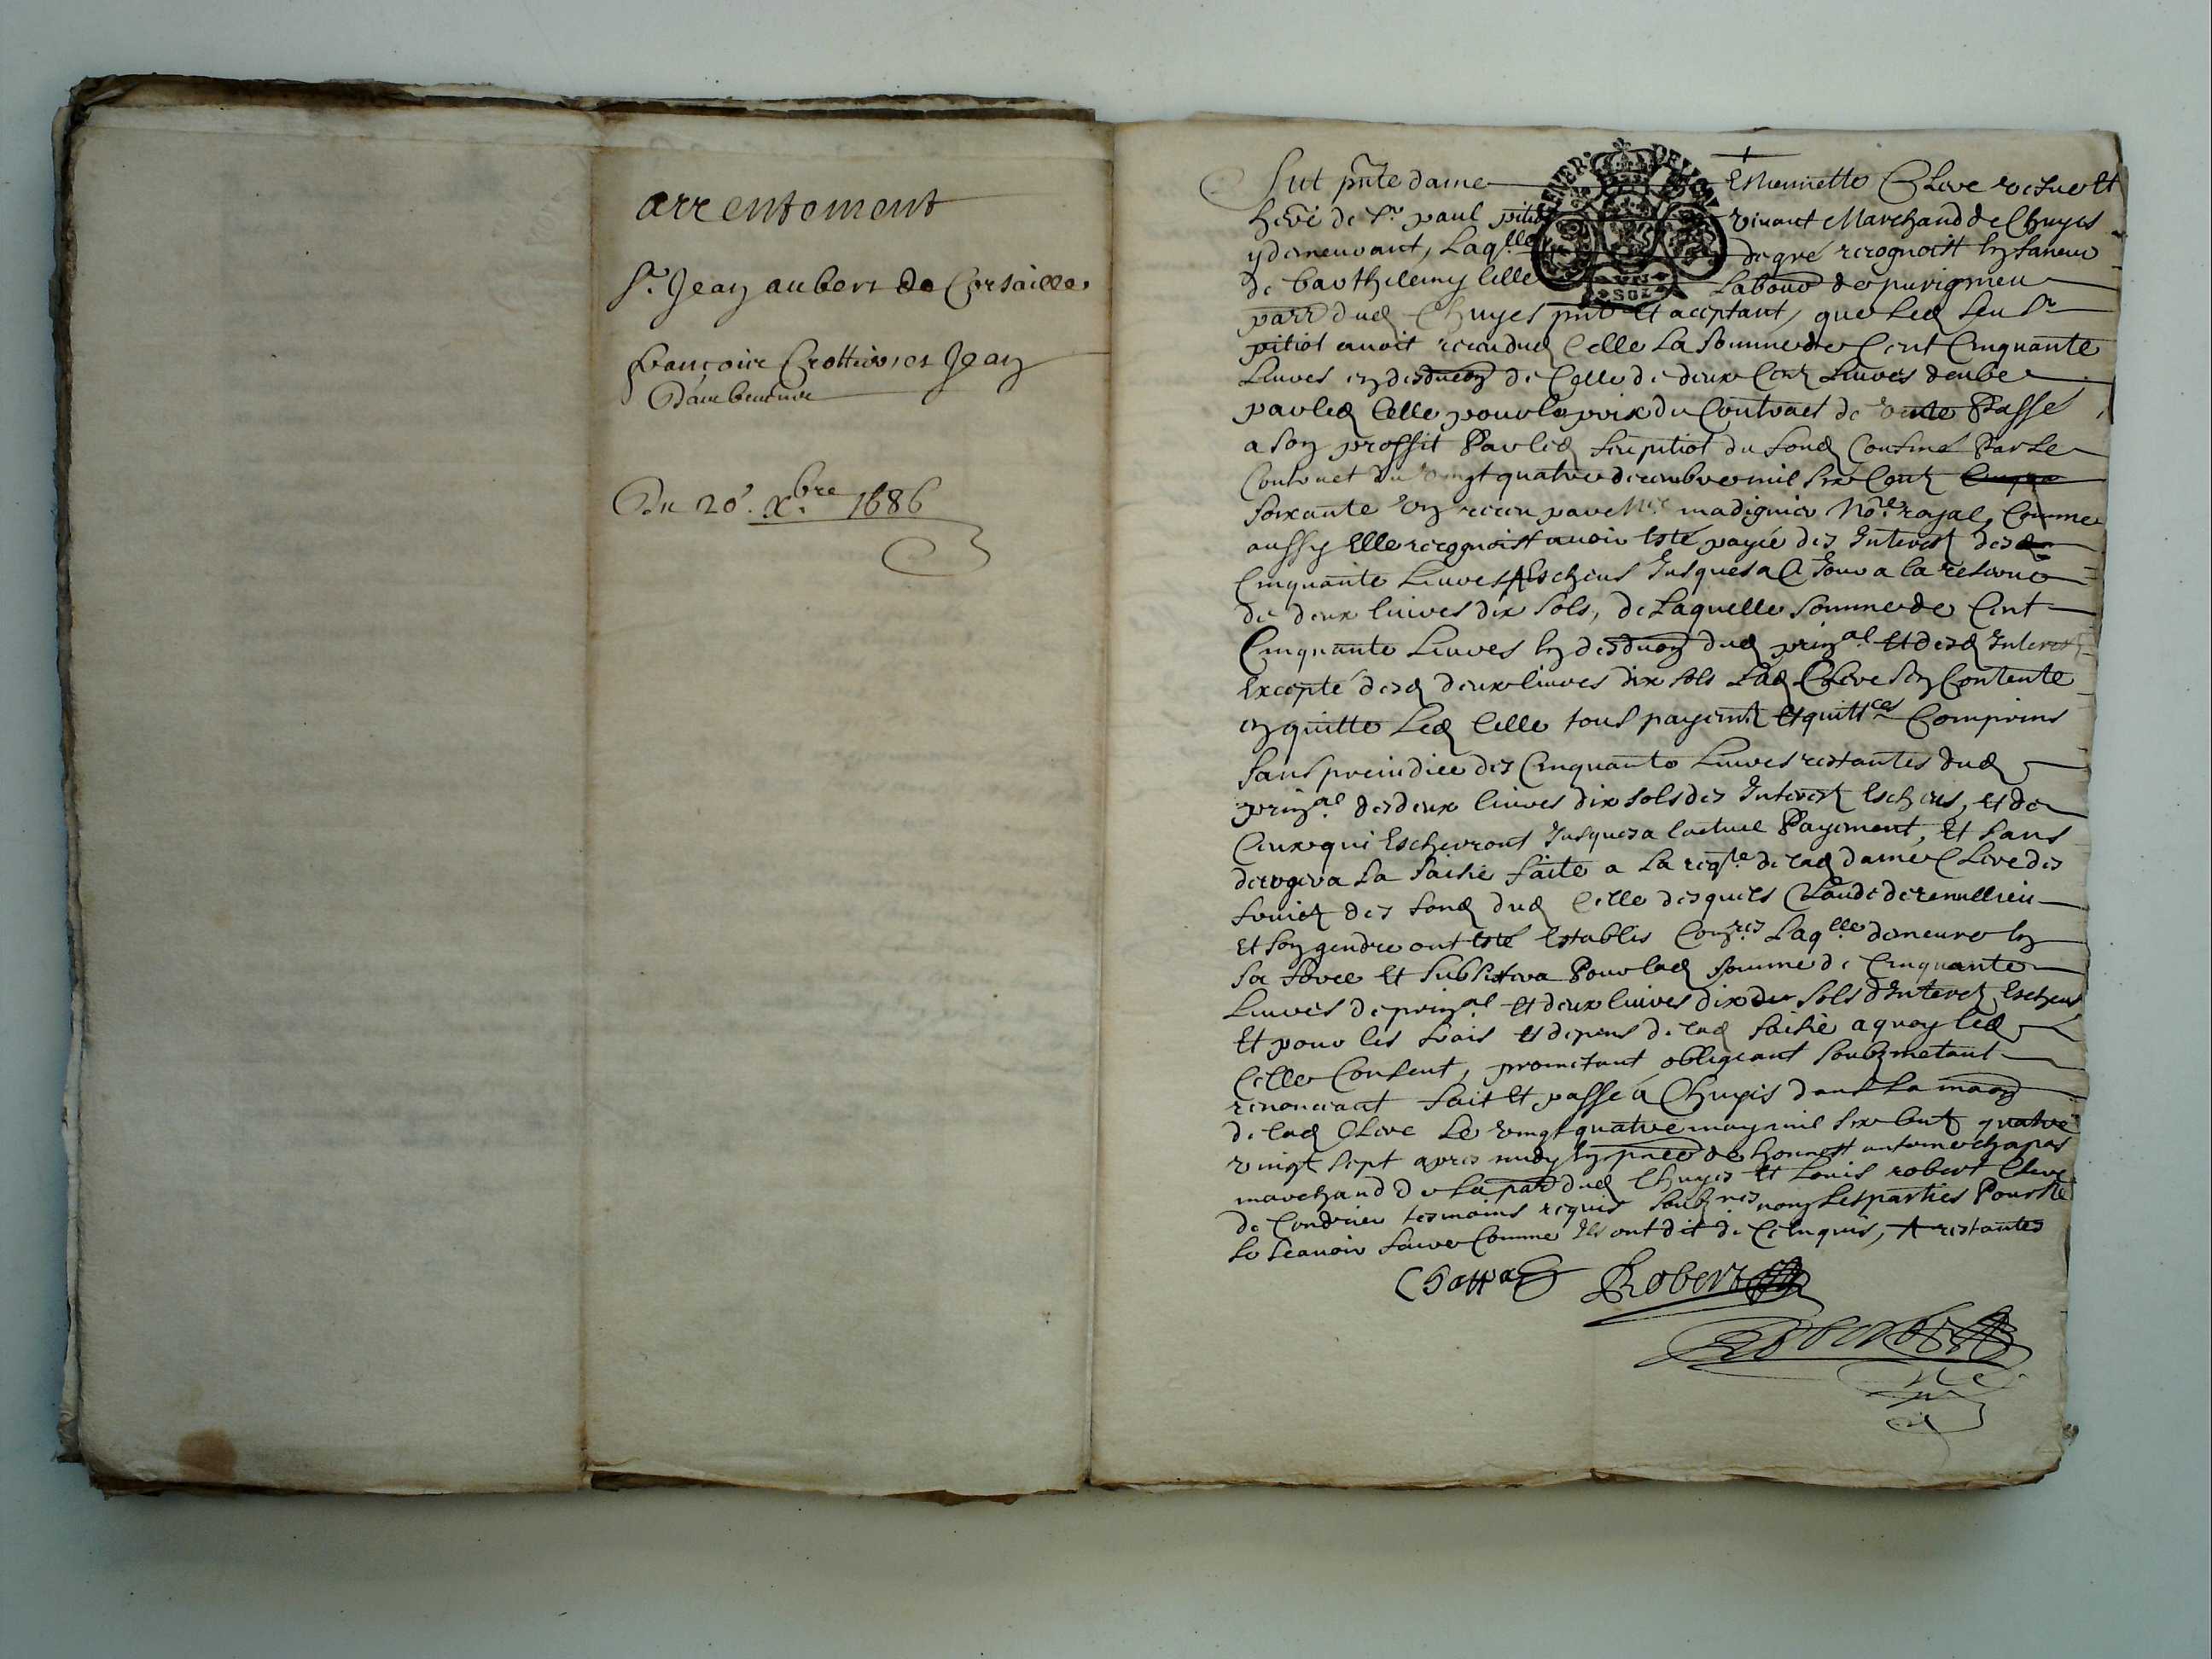 arrentement
Sr Jean aubert de Corsailles
francoise Crottier et Jean
Du 20e Xbre 1686
Fut pnte dame Estiennette Clere vefue et
here de Sr paul pitiot vivant Marchand de Chuyes
y demeurant, Laqlle de gré recognoist en faveur
de barthelemy Celle Labour de puvigneu
parr dud Chuyes pnt et aceptant, que led feu Sr
pitiot avoit receu dud Celle La Somme de Cent Cinquante
Livres en desduon de Celle de deux Centz Livres deube
par led Celle pour le prix du Contract de vente Passé
a son proffit Par led feu pitiot du fond Confiné Par le
Contract du vingt quatre decembre mil six Centz
soixante un receu par Me madignier Nore royal, Comme
aussy Elle recognoist avoir esté payée des Interestz desd
Cinquante Livres Escheus Jusques a Ce Jour a la reserve
de deux livres dix sols, de Laquelle somme de Cent
Cinquante Livres en desduon dud prinal et desd Interestz
Excepté desd deux livres dix sols Lad Clere sen Contente
en quitte Led Celle tous payemtz et quittces Comprins
sans preiudice des Cinquante Livres restantes dud
prinal des deux livres dix sols des Interestz Escheus, et de
Ceux qui Escherront Jusques a lactuel Payement, et sans
deroger a La saisie faite a La reqte de lad dame Clere des
fruictz des fondz dud Celle desquels Claude derenullieu
et son gendre ont esté Establis Conres Laqlle demeure en
sa force et subsistera Pour lad somme de Cinquante
Livres de prinal et deux livres dix sols dInterestz Escheus
et pour les frais et depens de lad saisie a quoy led
Celle Consent, prometant obligeant soubzmetant
renonceant fait et passé a Chuyes dans la maon
de lad Clere Le vingt quatre may mil six Centz quatre
vingt sept apres midy en pnce de honnest antoine chapas
marchand de La parr dud Chuyes et Louis robert Clerc
de Condrieu tesmoins requis soubznes non Les parties Pour ne
Le Scavoir faire Comme Ils ont dit de Ce Enquis, restantes
Robert